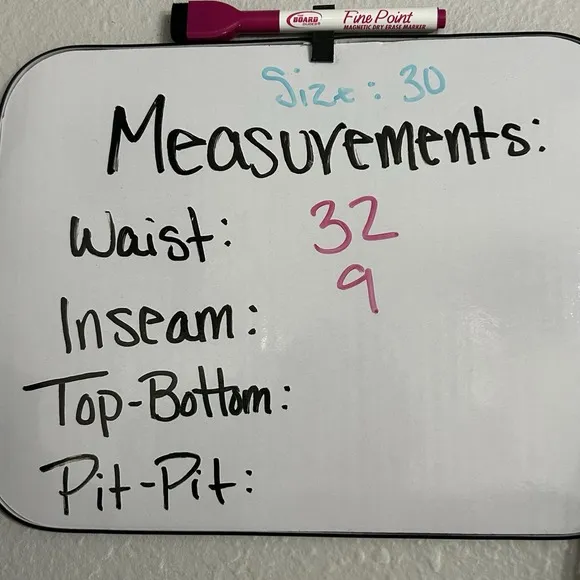 THE BOARD DUDES Fine Point
MAGNETIC DRY ERASE MARKER
Size: 30
Measurements:
Waist: 32
9
Inseam:
Top-Bottom:
Pit-Pit: